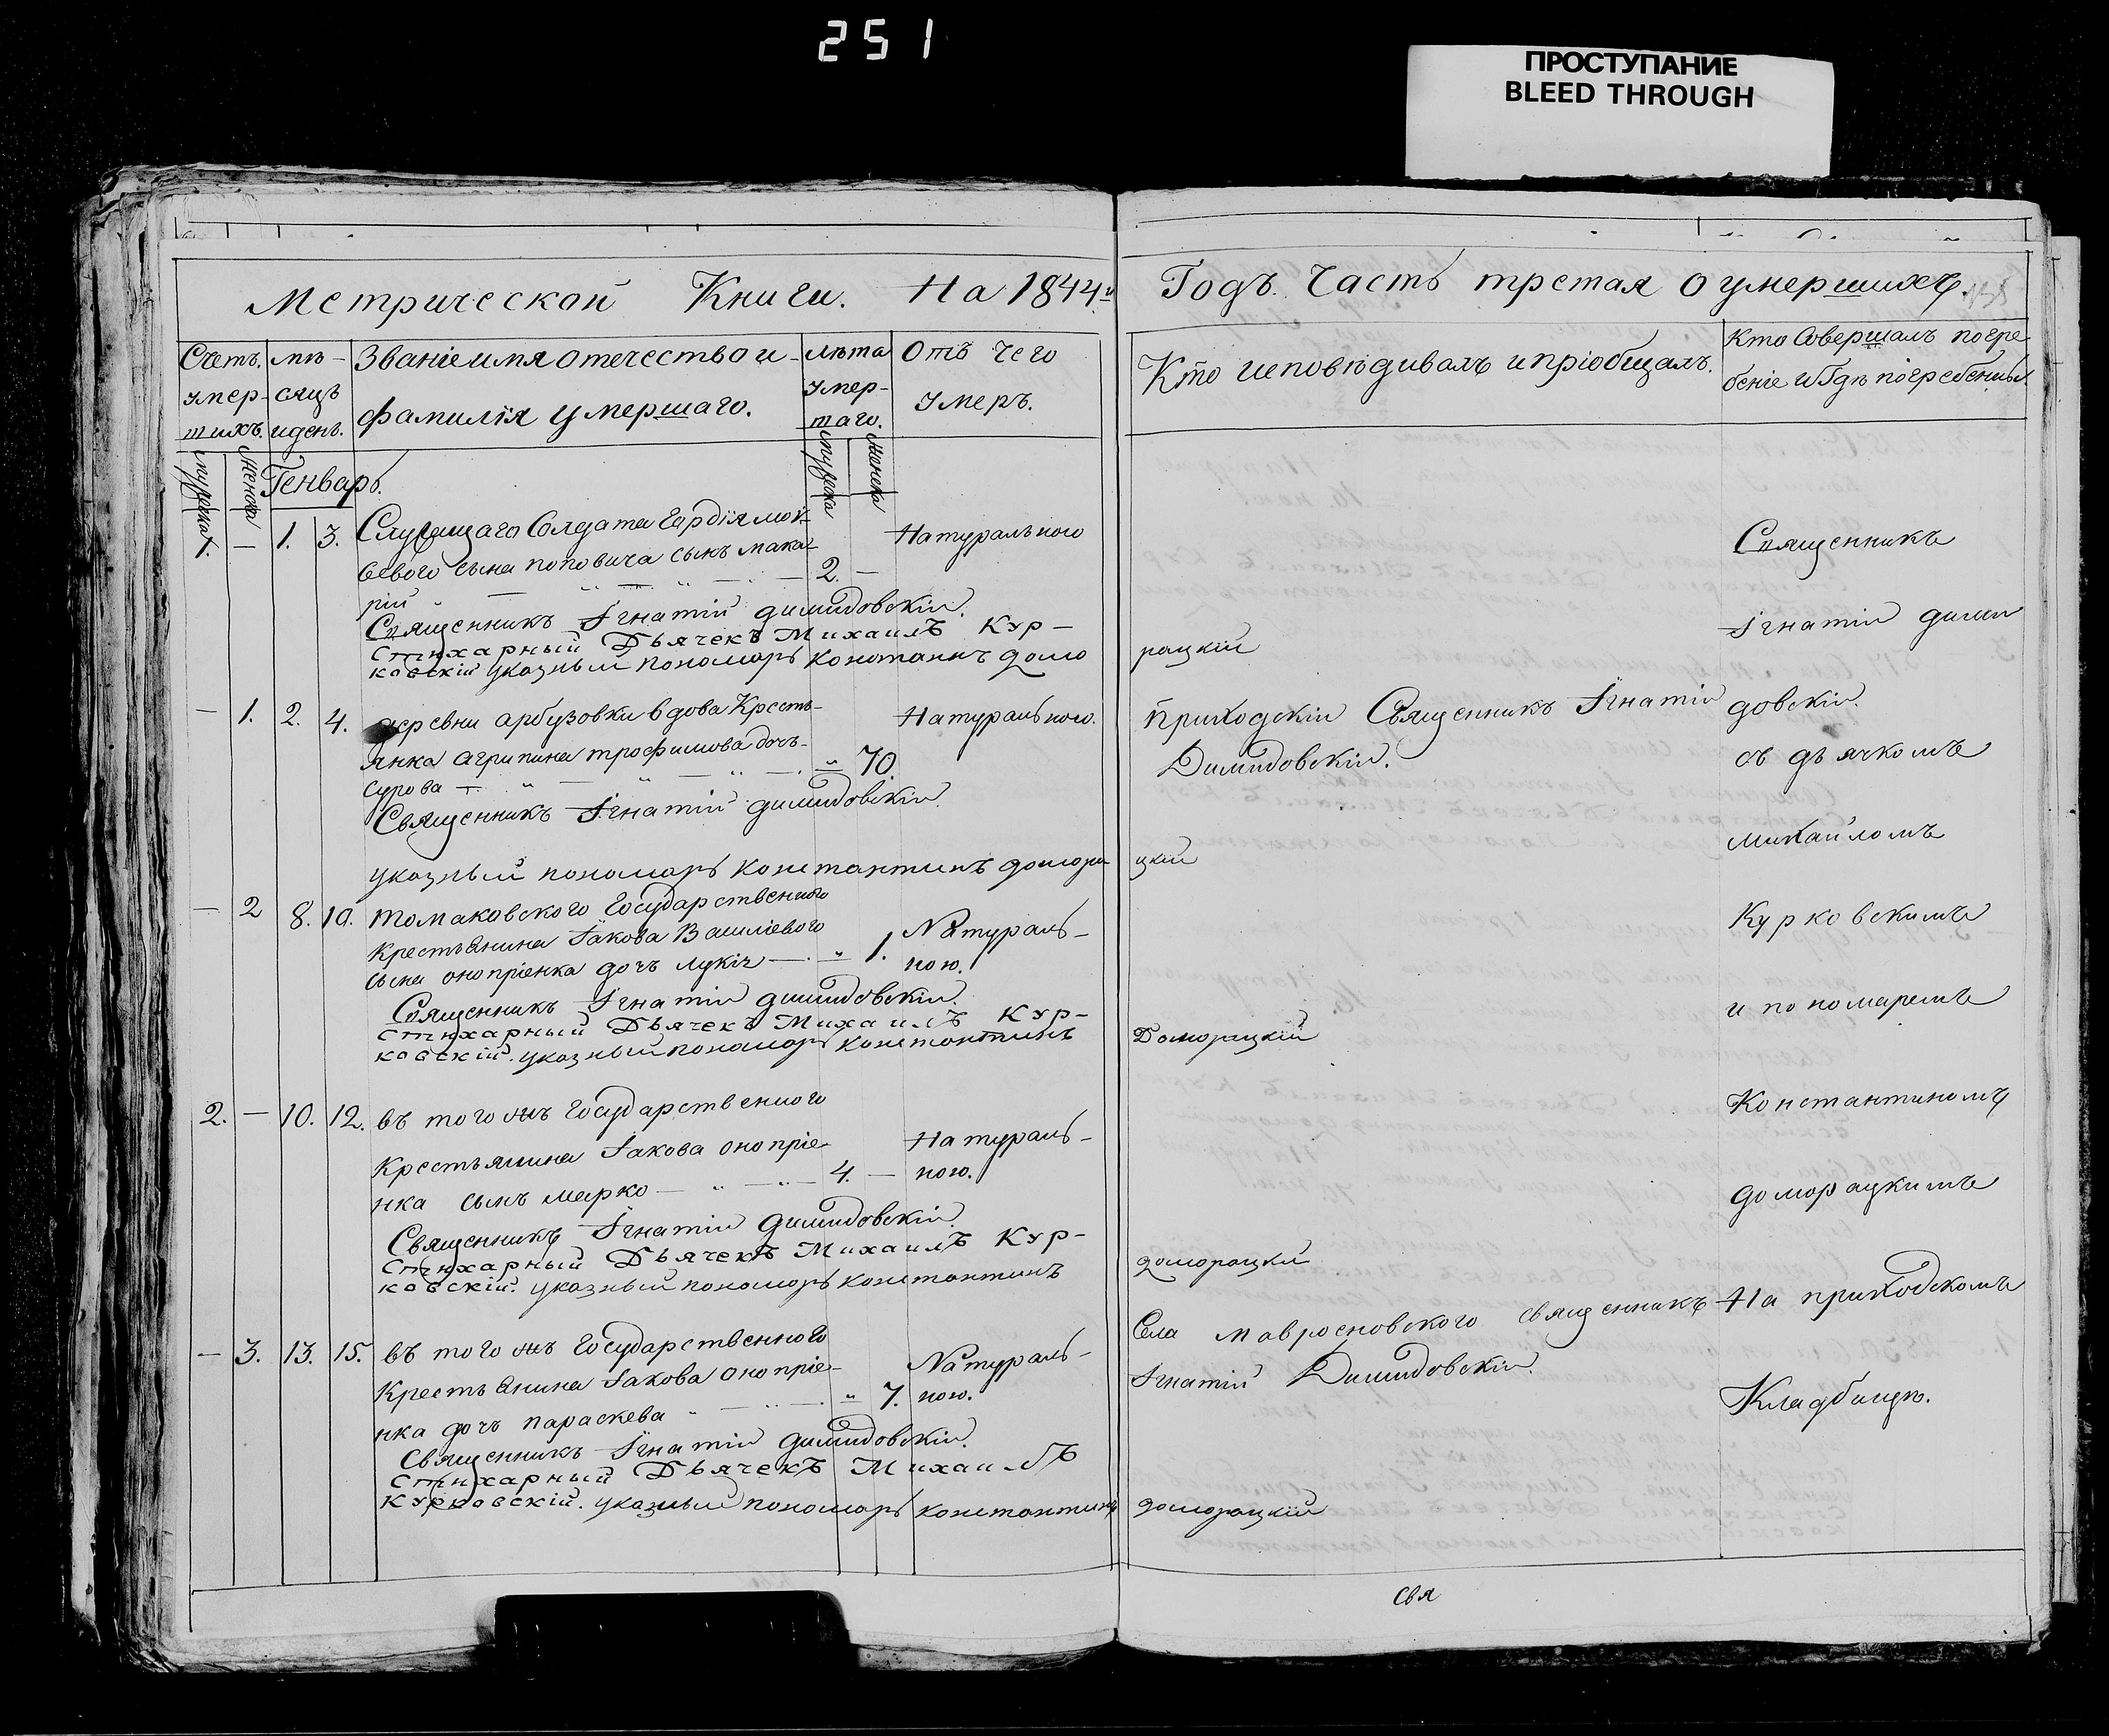 251
ПРОСТУПАНИЕ
BLEED THROUGH
Метрической Книги. На 1844й Годъ. Часть третая о умершихъ.
Счетъ умершихъ. мѣсяцъ и день. Званіе имя отечество и фамилія умершаго. лѣта умершаго. Отъ чего умеръ. Кто исповѣдивалъ и пріобщалъ. Кто Совершалъ погребеніе и Гдѣ погребенны.
мужска женска Генварь. мужска женска
1. — 1. 3. Служащаго Солдата Гордія мой-
сеевого сына поповича сынъ мака- 2. — Натуральною
рій
Священникъ Ігнатій димидовскій.
Стихарный Дьячекъ Михаилъ Кур-
ковскій указный пономарь констанинъ домо
рацкій
— 1. 2. 4. деревни арбузовки вдова Кресть-
янка агрипина трофимова дочь „ 70. Натуральною.
сурова
Приходскій Священникъ Ігнатій
Димидовскій.
Священникъ Ігнатій димидовскій.
указный пономарь константинъ домора
цкій
— 2 8. 10. томаковского Государственного
Крестьянина Іакова Василіевого
сына онопріенка дочь лукія „ 1. Натураль-
ною.
Священникъ Ігнатій димидовскій.
Стихарный Дьячекъ Михаилъ Кур-
ковскій. указный пономарь константинъ
Доморацкій
2. — 10. 12. въ того жъ Государственного
Крестьянина Іакова онопріе-
нка сынъ марко 4. — Натураль-
ною.
Священникъ Ігнатій димидовскій.
Стихарный Дьячекъ Михаилъ Кур-
ковскій. указный пономарь константинъ
доморацкій
— 3. 13. 15. въ того жъ Государственного
Крестьянина Іакова онопріе-
нка дочь параскева „ 7. Натураль-
ною.
Села мавросновского священникъ
Ігнатій Димидовскій.
Священникъ Ігнатій димидовскій.
Стихарный Дьячекъ Михаилъ
Курковскій. указный пономарь константинъ
доморацкій
Священникъ
Ігнатій дими
довскій.
съ дьячкомъ
михайломъ
Курковскимъ
и пономаремъ
Константиномъ
доморацкимъ
На приходскомъ
Кладбищѣ.
Свя